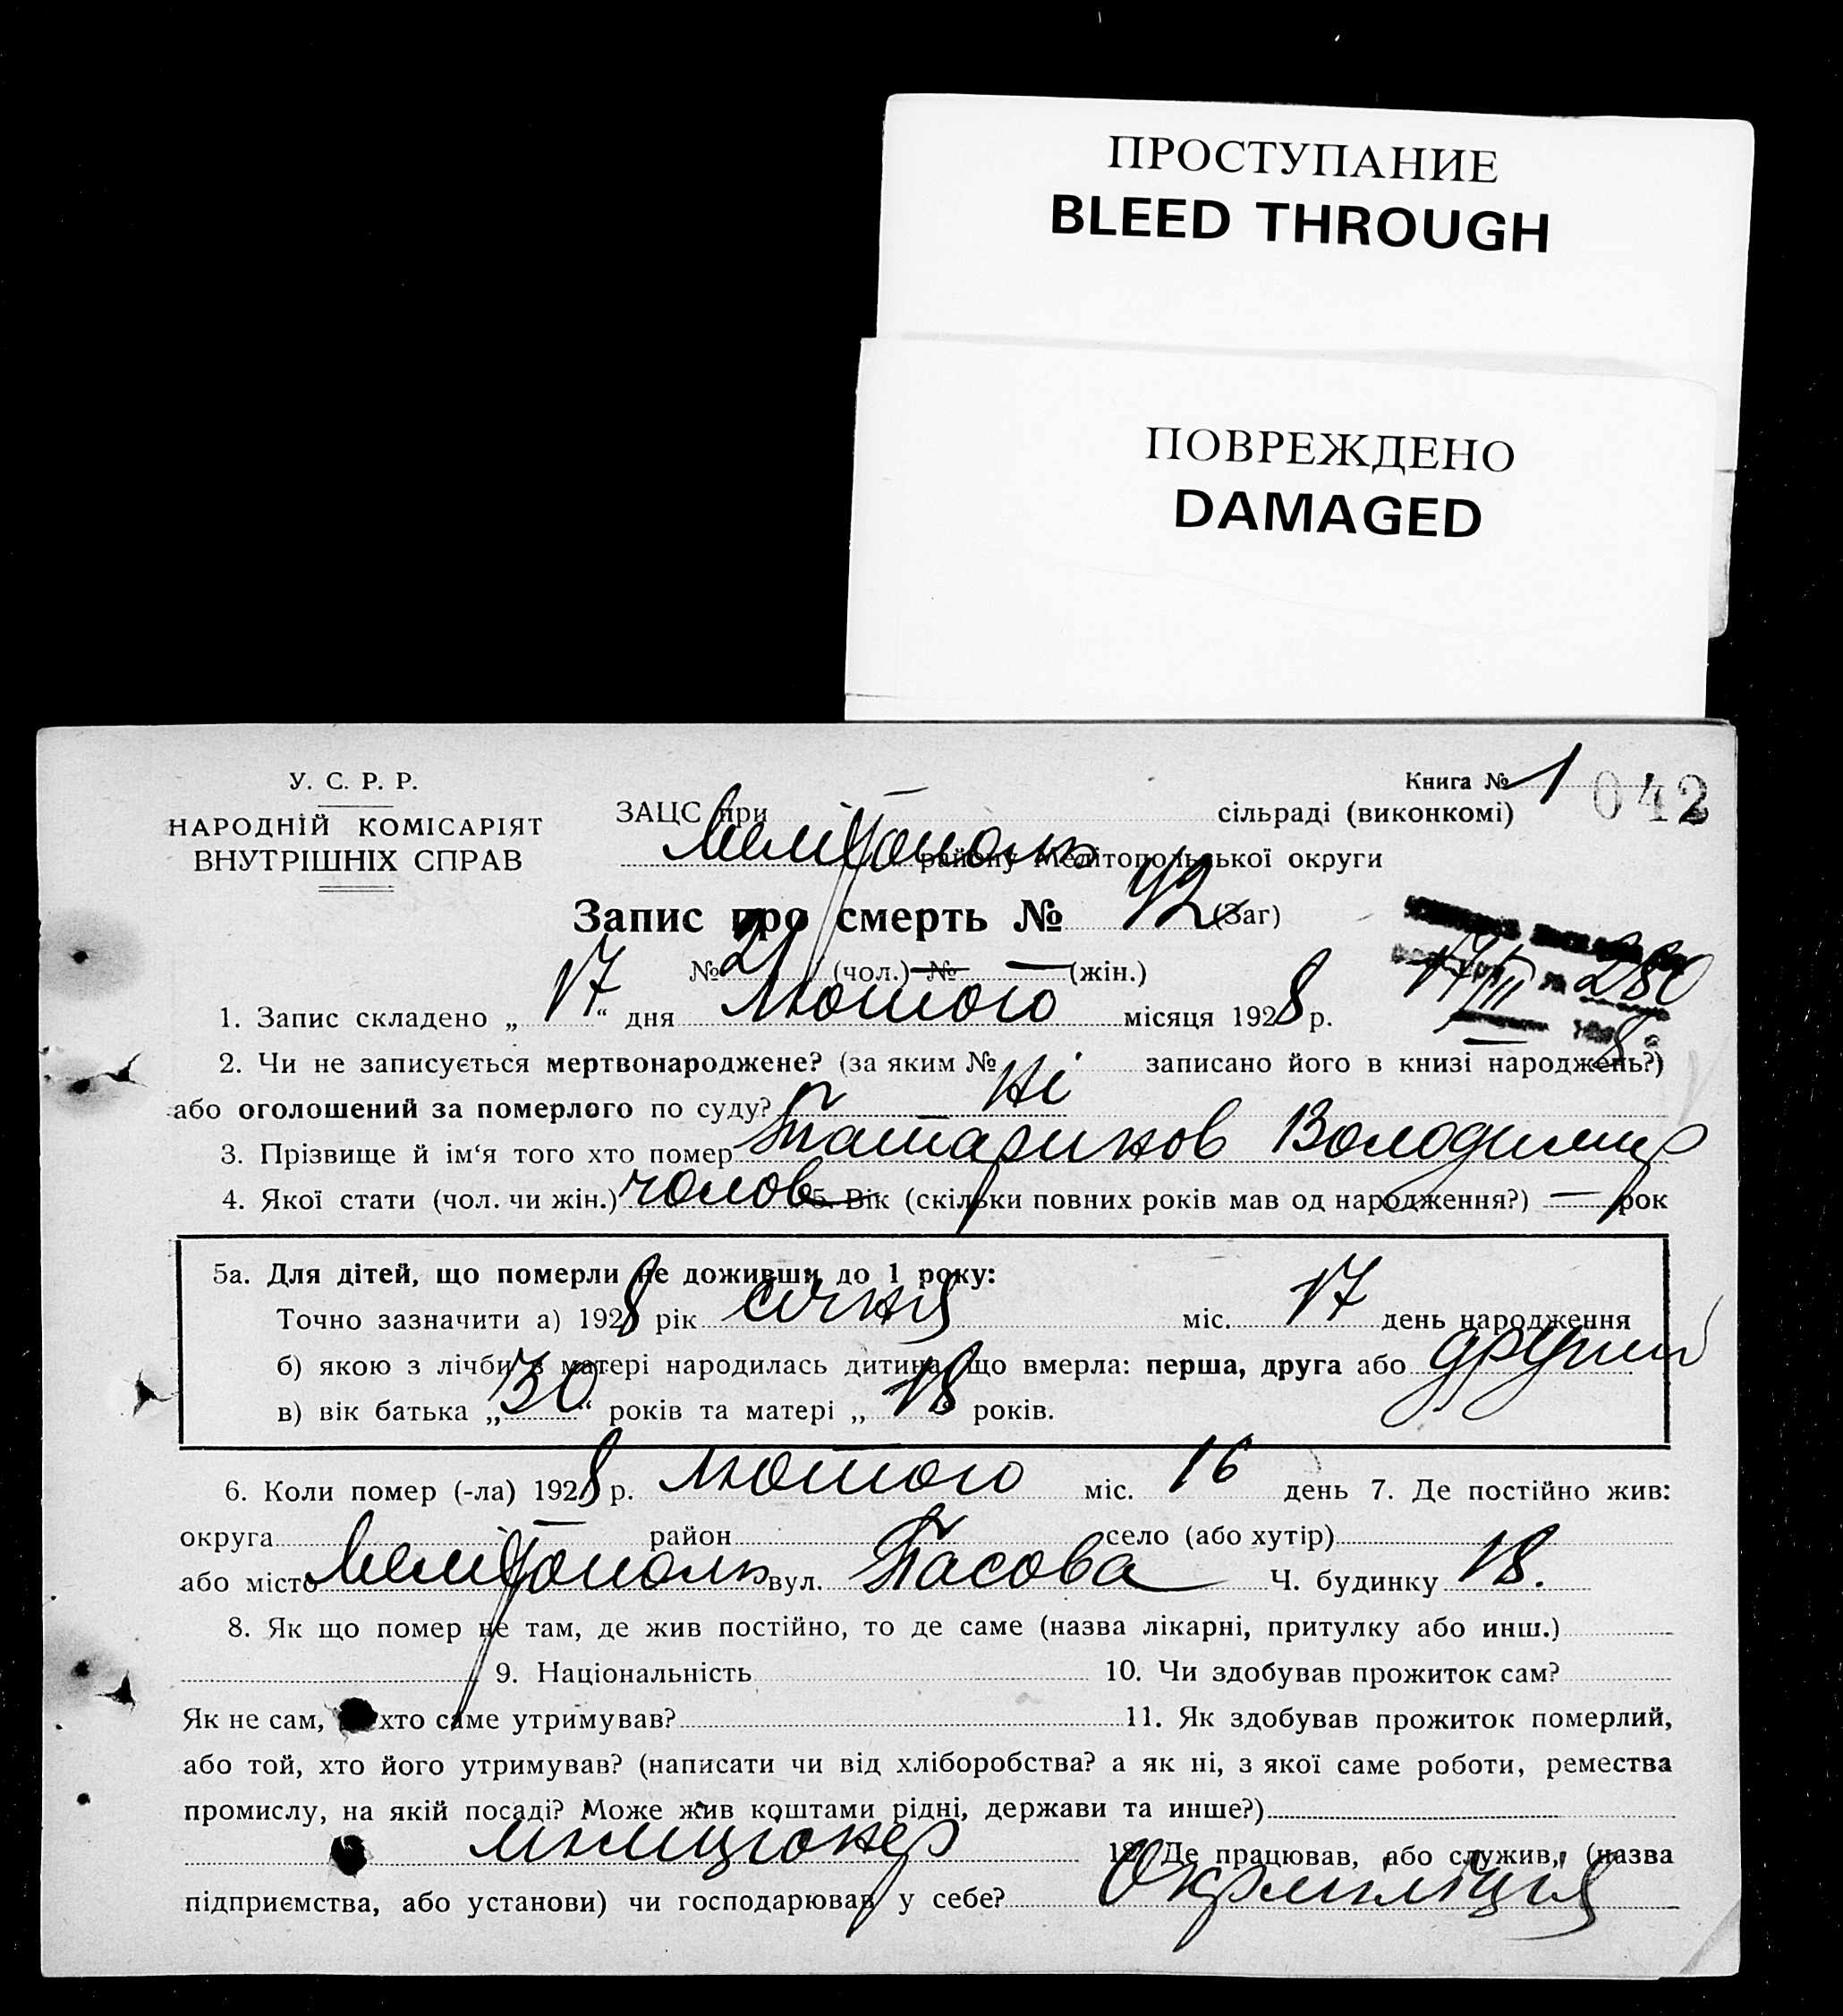 ПРОСТУПАНИЕ
BLEED THROUGH
ПОВРЕЖДЕНО
DAMAGED
У. С. Р. Р.
НАРОДНІЙ КОМІСАРІЯТ
ВНУТРІШНІХ СПРАВ
Книга № 1 042
ЗАЦС при сільраді (виконкомі)
Мелітополь району Мелітопольської округи
Запис про смерть № 42 (Заг)
№ 21 (чол.) № — (жін.)
17/III 280
8
1. Запис складено „ 17 “ дня лютого місяця 1928 р.
2. Чи не записується мертвонароджене? (за яким № записано його в книзі народжень?)
або оголошений за померлого по суду? ні
3. Прізвище й ім‘я того хто помер Татаринов Володимир
4. Якої стати (чол. чи жін.) чолов 5. Вік (скільки повних років мав од народження?) — рок
5а. Для дітей, що померли не доживши до 1 року:
Точно зазначити а) 1928 рік січня міс. 17 день народження
б) якою з лічби з матері народилась дитина, що вмерла: перша, друга або другий
в) вік батька „ 30 “ років та матері „ 18 “ років.
6. Коли помер (-ла) 1928 р. лютого міс. 16 день 7. Де постійно жив:
округа район село (або хутір)
або місто Мелітополь вул. Тасова Ч. будинку 18.
8. Як що помер не там, де жив постійно, то де саме (назва лікарні, притулку або инш.)
9. Національність 10. Чи здобував прожиток сам?
Як не сам, хто саме утримував? 11. Як здобував прожиток померлий,
або той, хто його утримував? (написати чи від хліборобства? а як ні, з якої саме роботи, ремества
промислу, на якій посаді? Може жив коштами рідні, держави та инше?)
міліціонер 12. Де працював, або служив, (назва
підприємства, або установи) чи господарював у себе? Окрміліція